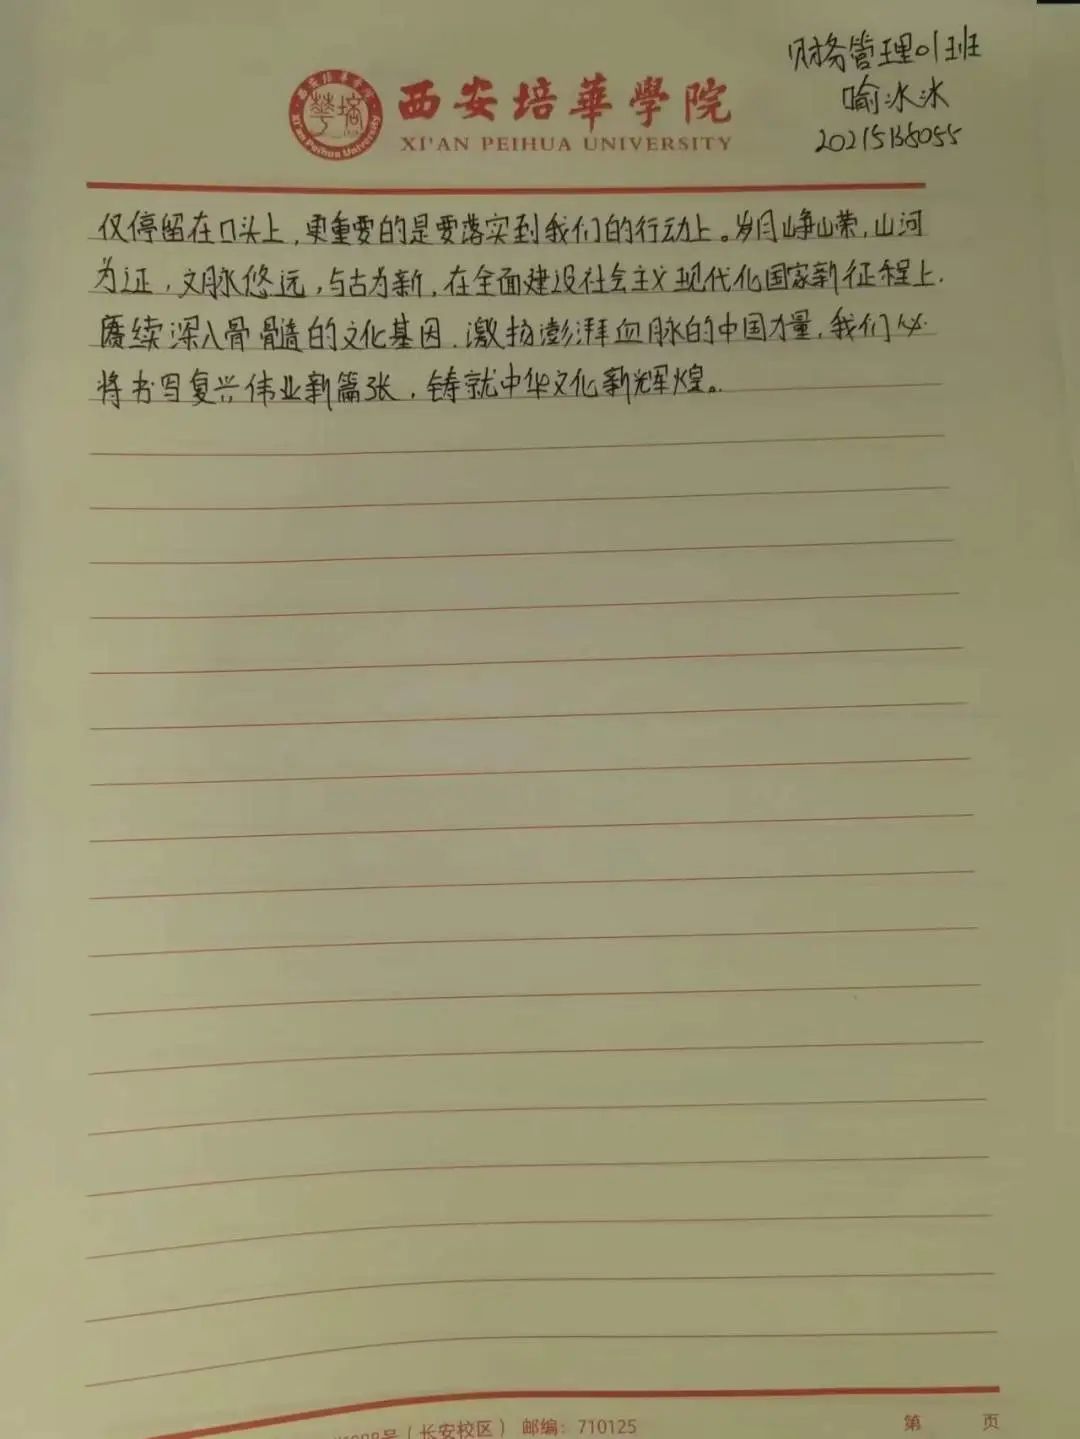 财务管理01班
喻冰冰
西安培華學院
XI'AN PEIHUA UNIVERSITY
仅停留在口头上,更重要的是要落实到我们的行动上。岁月峥嵘,山河
为证,文脉悠远,与古为新,在全面建设社会主义现代化国家新征程上,
赓续深入骨髓的文化基因,激扬澎湃血脉的中国力量,我们必
将书写复兴伟业新篇张,铸就中华文化新辉煌。
号(长安校区) 邮编:710125
第 页